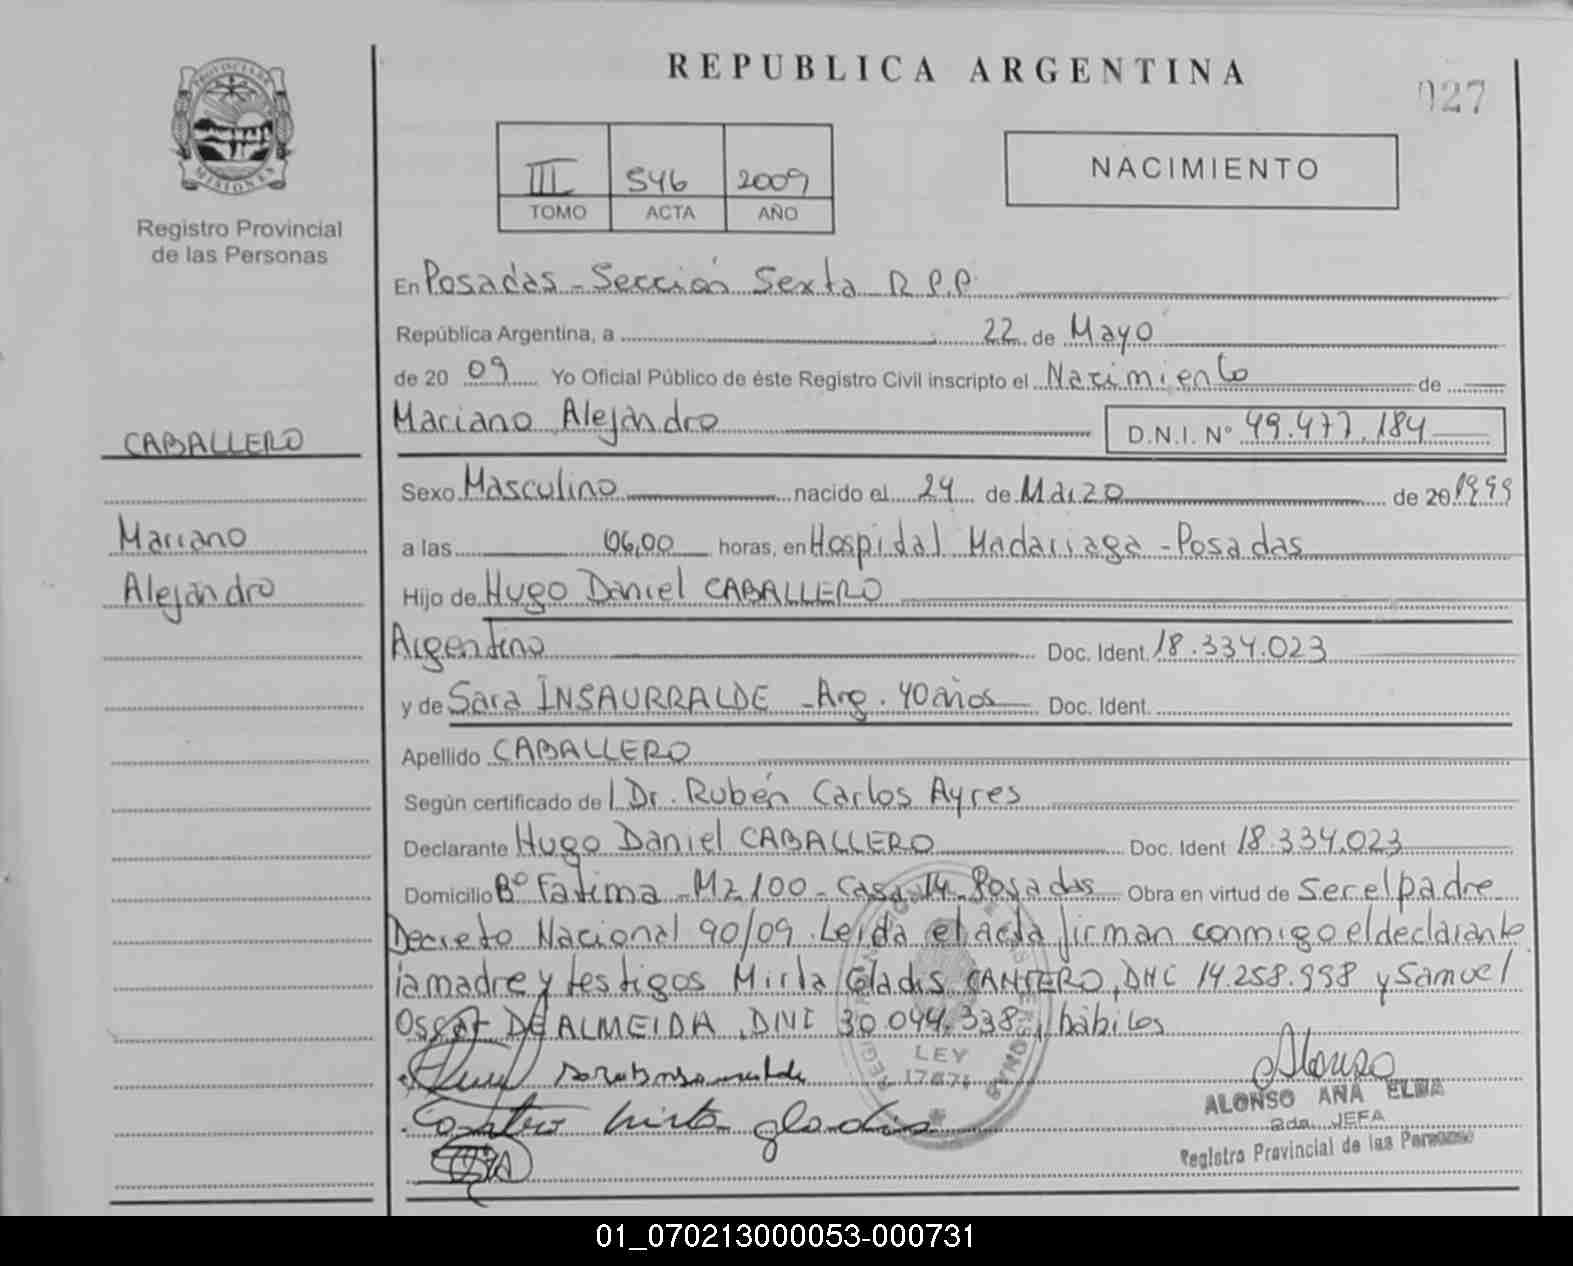 REPUBLICA ARGENTINA
027
PROVINCIA DE
MISIONES
Registro Provincial
de las Personas
III 546 2009
TOMO ACTA AÑO
NACIMIENTO
En Posadas - Sección Sexta R.P.P.
República Argentina, a 22 de Mayo
de 20 09 Yo Oficial Público de éste Registro Civil inscripto el Nacimiento de
Mariano Alejandro D.N.I. N° 49.477.184
CABALLERO
Sexo Masculino nacido el 24 de Marzo de 20 1999
Mariano
a las 06,00 horas, en Hospidal Madariaga - Posadas
Alejandro
Hijo de Hugo Daniel CABALLERO
Argentino Doc. Ident. 18.334.023
y de Sara INSAURRALDE - Arg. 40 años Doc. Ident.
Apellido CABALLERO
Según certificado de l Dr. Rubén Carlos Ayres
Declarante Hugo Daniel CABALLERO Doc. Ident 18.334.023
Domicilio B° Fatima - Mz 100 - Casa 14 - Posadas Obra en virtud de Ser el padre
Decreto Nacional 90/09. Leida el acta firman conmigo el declarante
la madre y testigos Mirta Gladis CANTERO, DNI 14.258.998 y Samuel
Oscar DE ALMEIDA, DNI 30.044.338, hábiles
LEY
17671
Alonso
ALONSO ANA ELBA
2da. JEFA
Registro Provincial de las Personas
Cantero Mirta gladis
01_070213000053-000731